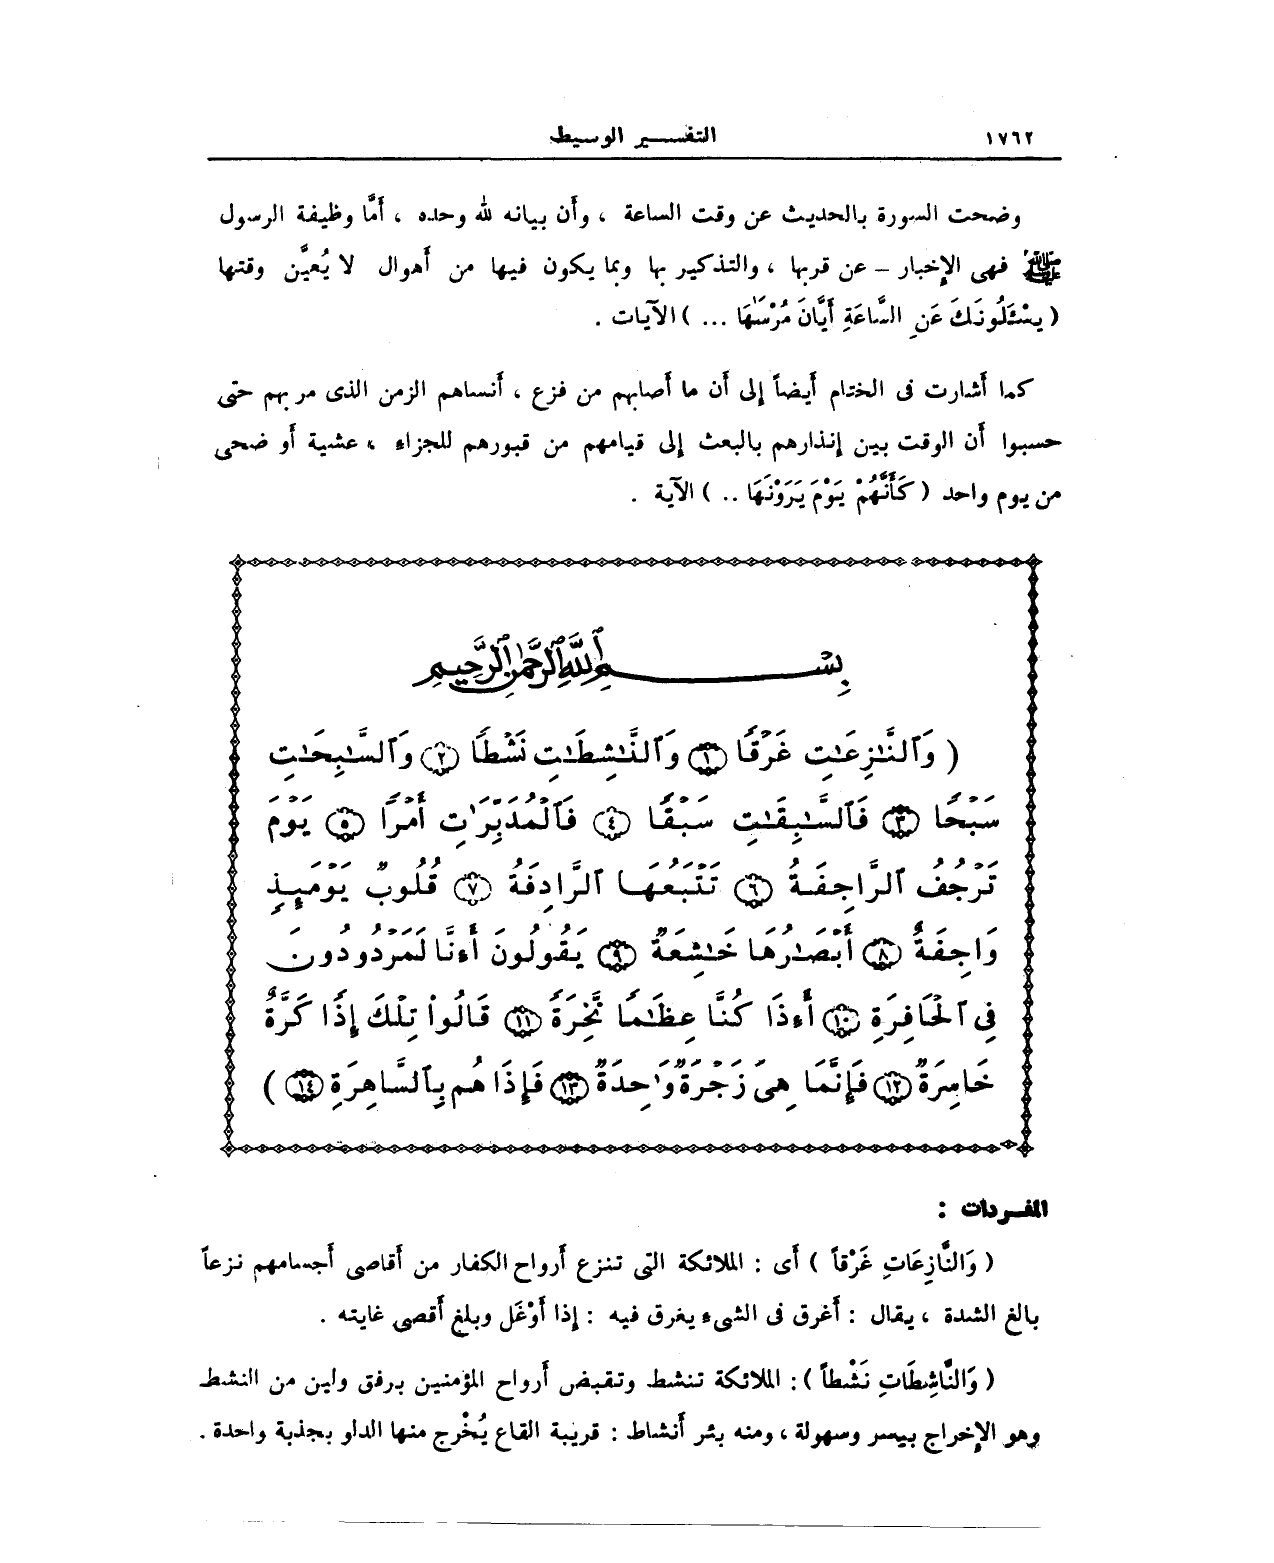 ١٧٦٢
التفسير الوسيط
وضحت السورة بالحديث عن وقت الساعة ، وأن بيانه لله وحده ، أمَّا وظيفة الرسول
ﷺ فهى الإخبار – عن قربها ، والتذكير بها وبما يكون فيها من أهوال لا يُعيَّن وقتها
( يَسْئَلُونَكَ عَنِ السَّاعَةِ أَيَّانَ مُرْسَىٰهَا ... ) الآيات .
كما أشارت فى الختام أيضاً إلى أن ما أصابهم من فزع ، أنساهم الزمن الذى مر بهم حتى
حسبوا أن الوقت بين إنذارهم بالبعث إلى قيامهم من قبورهم للجزاء ، عشية أو ضحى
من يوم واحد ( كَأَنَّهُمْ يَوْمَ يَرَوْنَهَا .. ) الآية .
بِسْمِ ٱللَّهِ ٱلرَّحْمَٰنِ ٱلرَّحِيمِ
( وَٱلنَّٰزِعَٰتِ غَرْقًا ١ وَٱلنَّٰشِطَٰتِ نَشْطًا ٢ وَٱلسَّٰبِحَٰتِ
سَبْحًا ٣ فَٱلسَّٰبِقَٰتِ سَبْقًا ٤ فَٱلْمُدَبِّرَٰتِ أَمْرًا ٥ يَوْمَ
تَرْجُفُ ٱلرَّاجِفَةُ ٦ تَتْبَعُهَا ٱلرَّادِفَةُ ٧ قُلُوبٌ يَوْمَئِذٍ
وَاجِفَةٌ ٨ أَبْصَٰرُهَا خَٰشِعَةٌ ٩ يَقُولُونَ أَءِنَّا لَمَرْدُودُونَ
فِى ٱلْحَافِرَةِ ١٠ أَءِذَا كُنَّا عِظَٰمًا نَّخِرَةً ١١ قَالُوا۟ تِلْكَ إِذًا كَرَّةٌ
خَاسِرَةٌ ١٢ فَإِنَّمَا هِىَ زَجْرَةٌ وَٰحِدَةٌ ١٣ فَإِذَا هُم بِٱلسَّاهِرَةِ ١٤ )
المفردات :
( وَالنَّازِعَاتِ غَرْقاً ) أى : الملائكة التى تنزع أرواح الكفار من أقاصى أجسامهم نزعاً
بالغ الشدة ، يقال : أغرق فى الشىء يغرق فيه : إذا أوْغَل وبلغ أقصى غايته .
( وَالنَّاشِطَاتِ نَشْطاً ) : الملائكة تنشط وتقبض أرواح المؤمنين برفق ولين من النشط
وهو الإخراج بيسر وسهولة ، ومنه بئر أنشاط : قريبة القاع يُخْرج منها الدلو بجذبة واحدة .